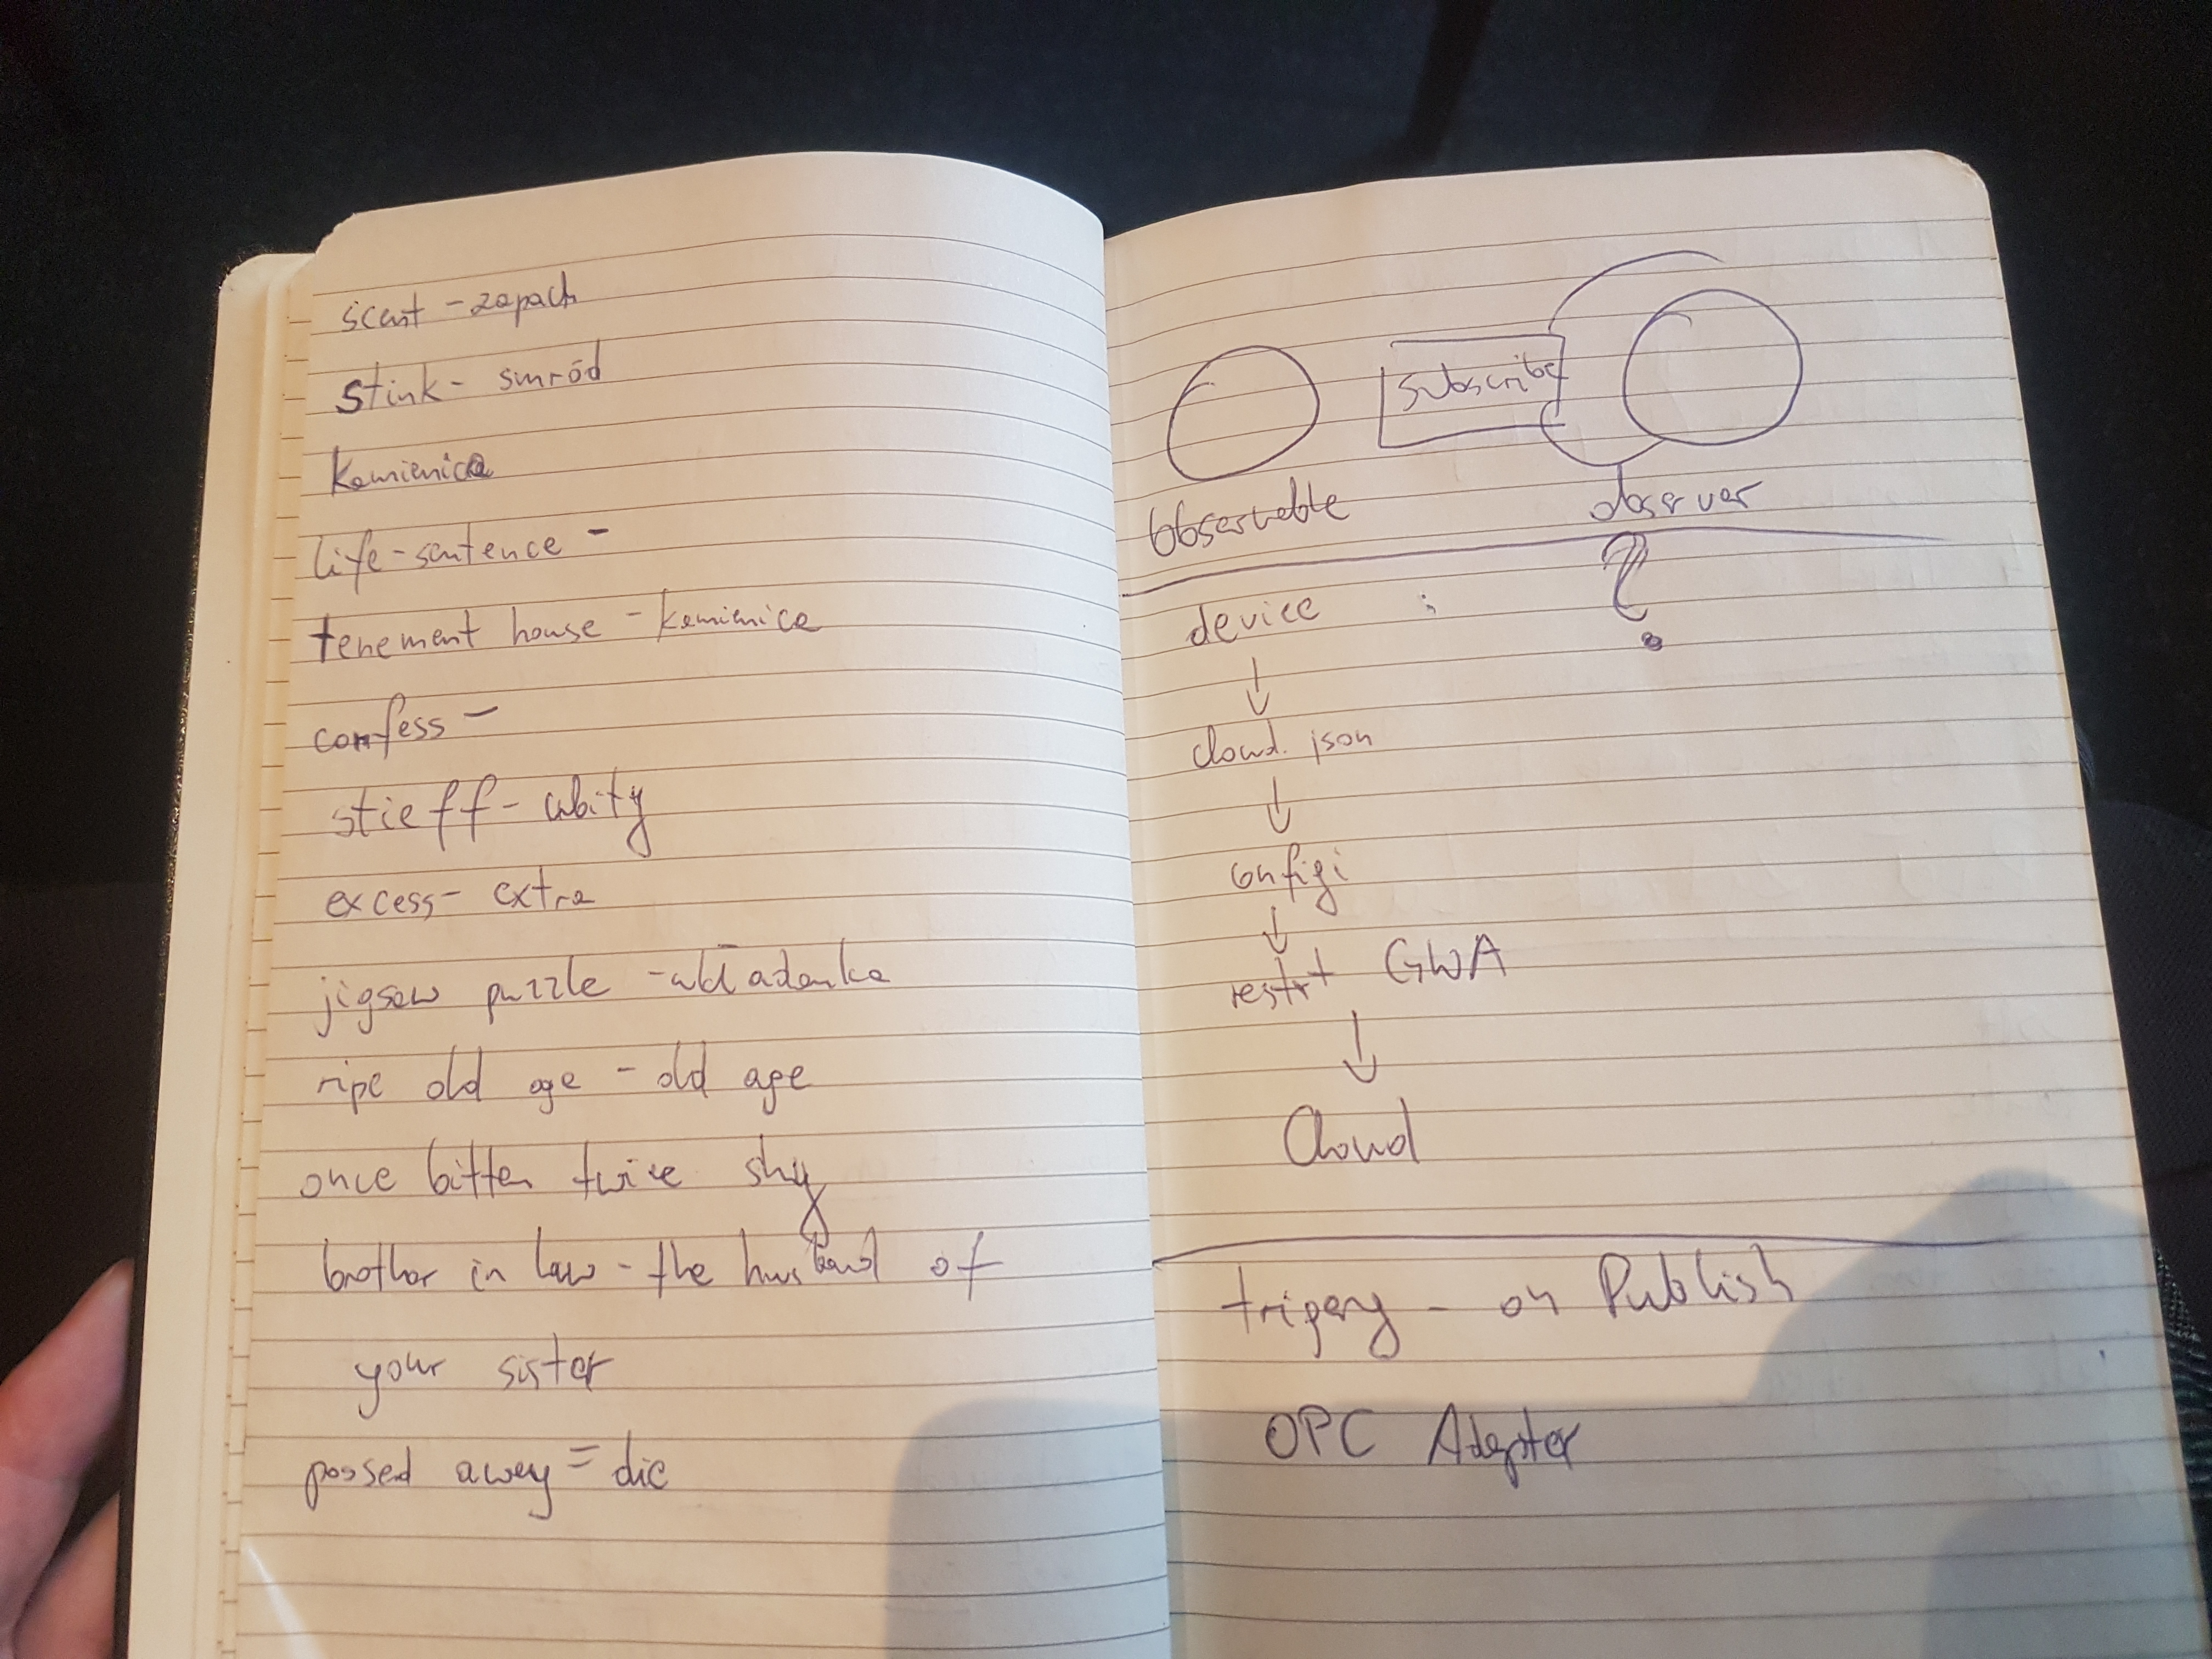 scent - zapach
stink - smród
Kamienica
life-sentence -
tenement house - kamienica
confess -
stieff - ubity
excess - extra
jigsaw puzzle - układanka
ripe old age - old age
once bitten twice shy
brother in law - the husband of
your sister
passed away = die
Subscribe
observable observer
device
cloud.json
configi
restart GWA
Cloud
trigery - on Publish
OPC Adapter